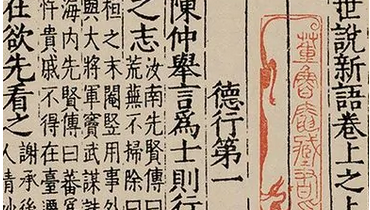 世說新語卷上之上
德行第一
陳仲舉言爲士則行
之志
汝南先賢傳曰
荒蕪不掃除曰
桓之末閹豎用事外
與大將軍竇武謀誅
海內先賢傳曰蕃爲
忤貴戚不得在臺
在欲先看之
謝承後
人清妙